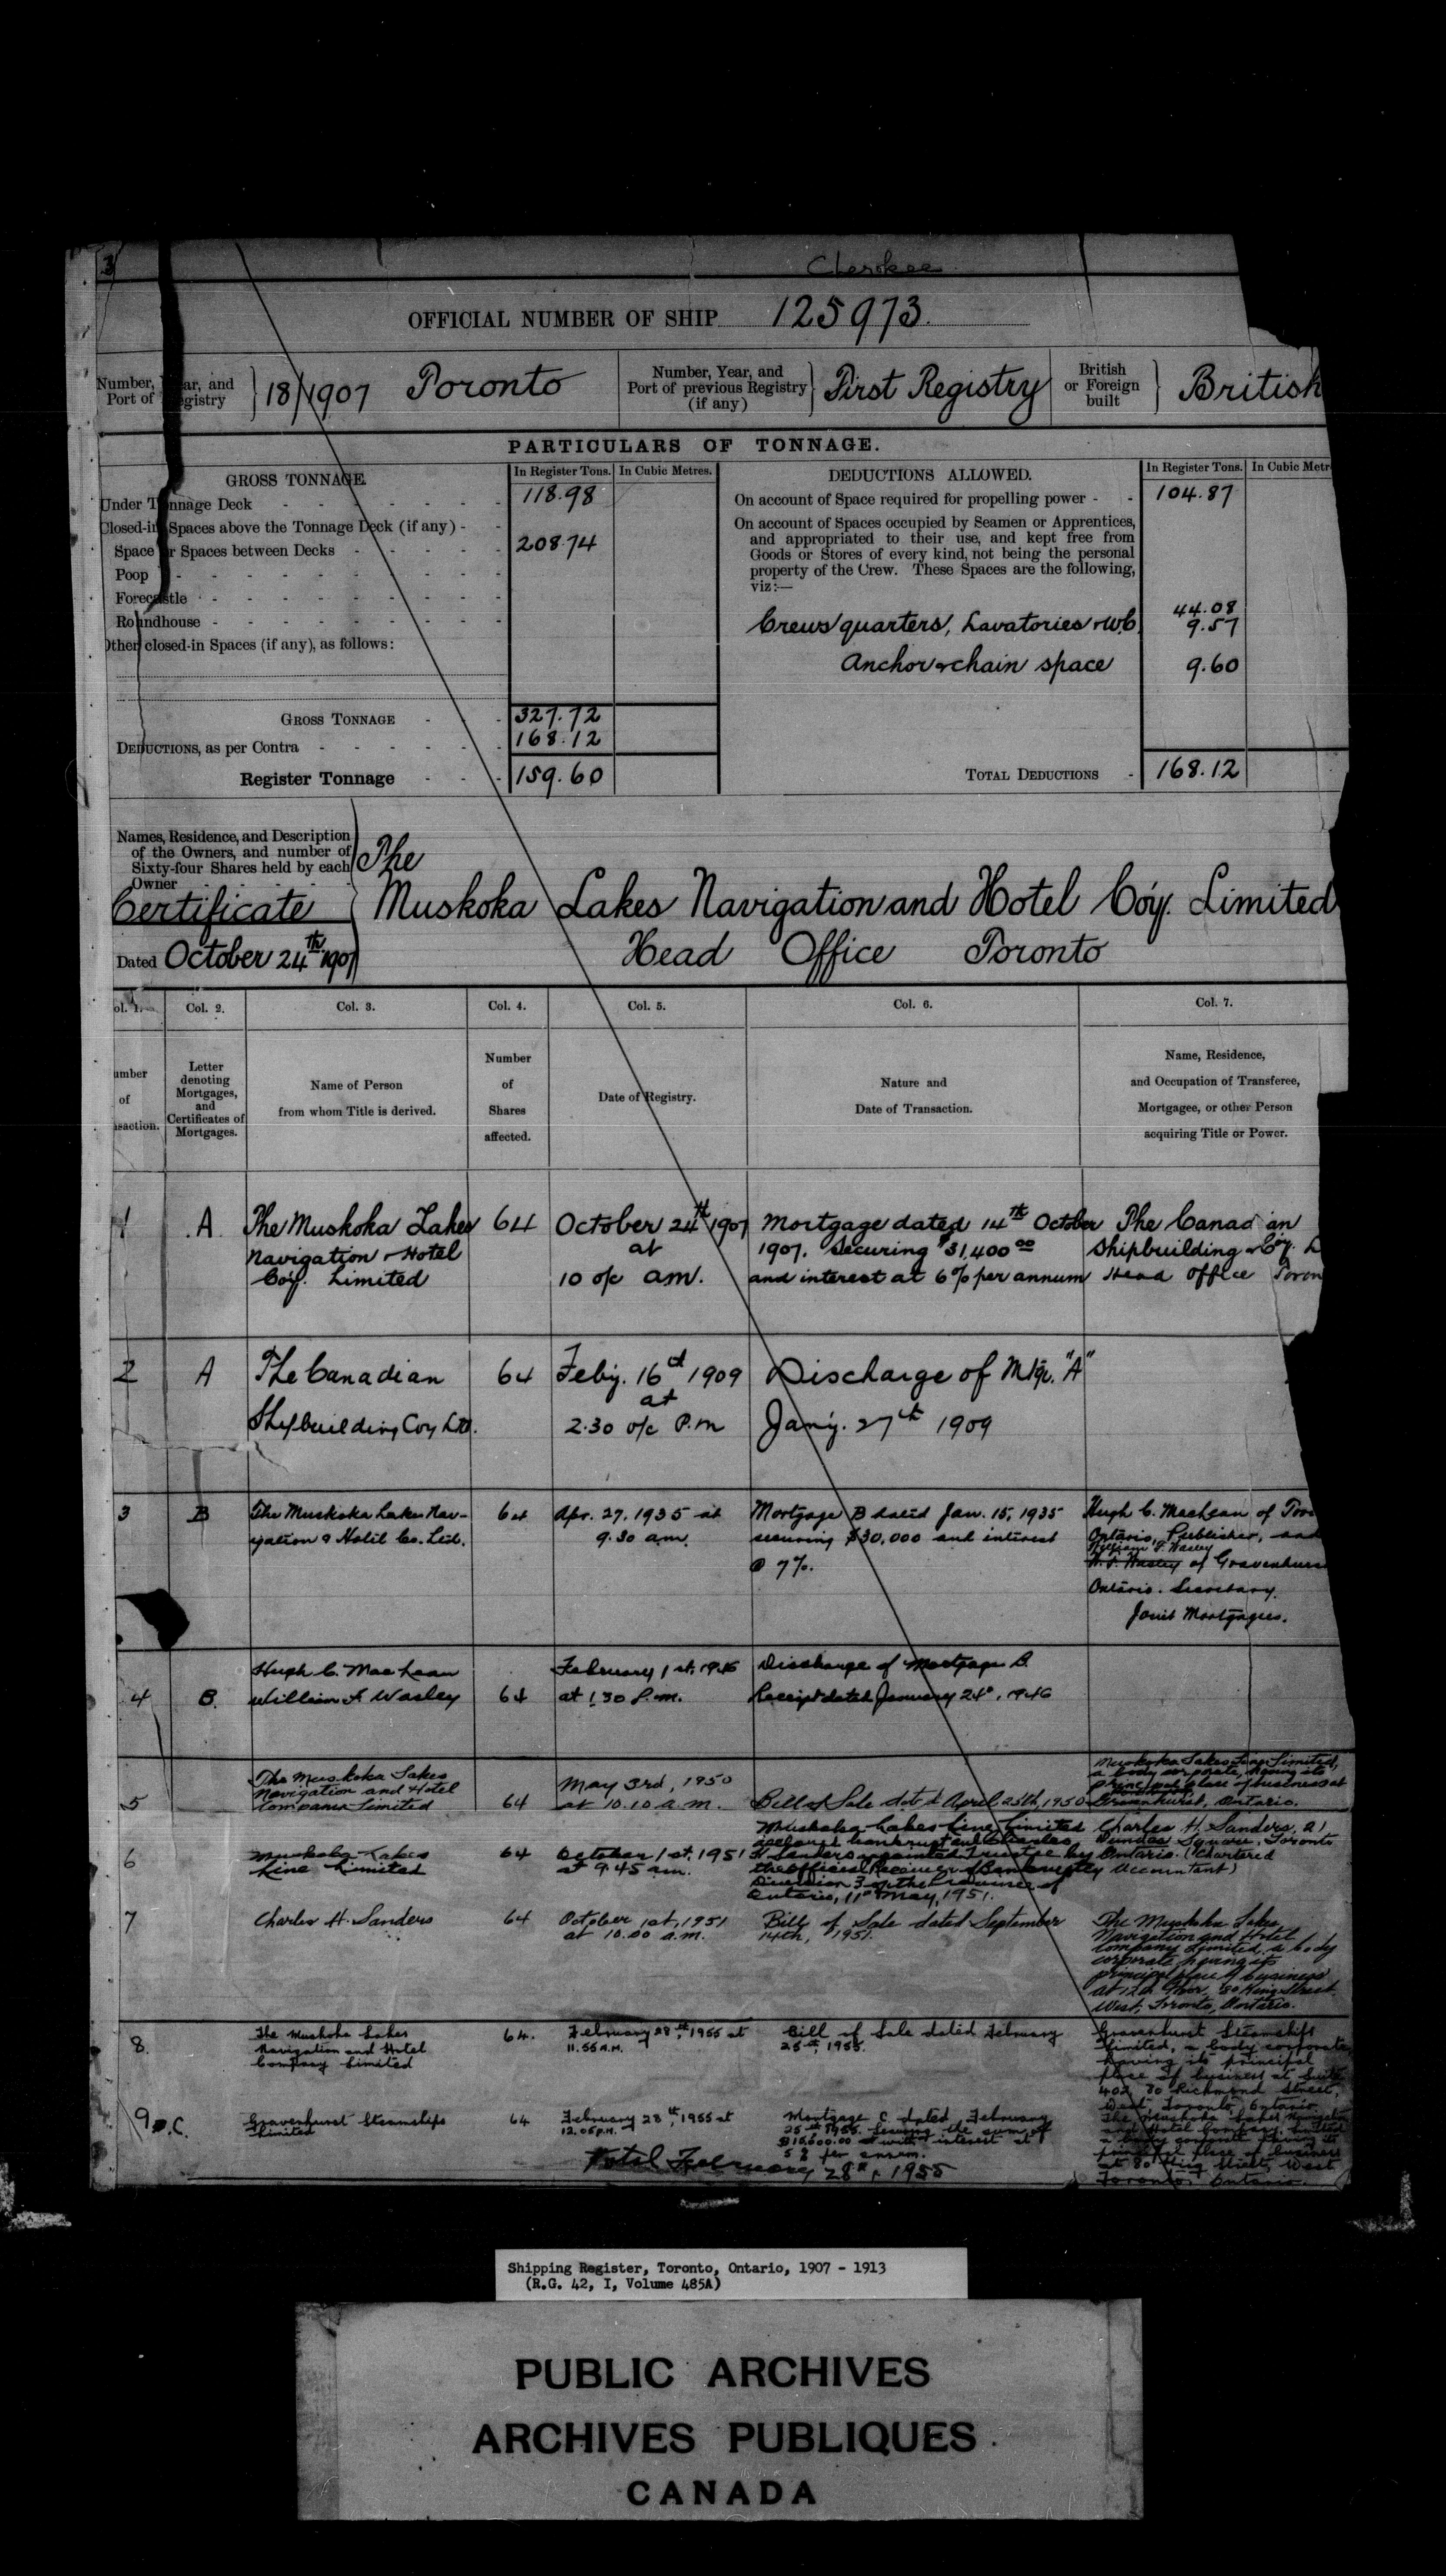 3
Cherokee
OFFICIAL NUMBER OF SHIP 125973.
Number, Year, and
Port of Registry
18/1907 Toronto
Number, Year, and
Port of previous Registry
(if any)
First Registry
British
or Foreign
built
British
PARTICULARS OF TONNAGE.
GROSS TONNAGE.
In Register Tons. In Cubic Metres.
Under Tonnage Deck 118.98
Closed-in Spaces above the Tonnage Deck (if any)
Space or Spaces between Decks 208.74
Poop
Forecastle
Roundhouse
Other closed-in Spaces (if any), as follows:
GROSS TONNAGE 327.72
DEDUCTIONS, as per Contra 168.12
Register Tonnage 159.60
DEDUCTIONS ALLOWED.
In Register Tons. In Cubic Metr
On account of Space required for propelling power 104.87
On account of Spaces occupied by Seamen or Apprentices,
and appropriated to their use, and kept free from
Goods or Stores of every kind, not being the personal
property of the Crew. These Spaces are the following,
viz:—
44.08
Crews quarters, Lavatories & W.C. 9.57
Anchor & chain space 9.60
TOTAL DEDUCTIONS 168.12
Names, Residence, and Description
of the Owners, and number of
Sixty-four Shares held by each
Owner
Certificate
Dated October 24th 1907
The
Muskoka Lakes Navigation and Hotel Coy. Limited
Head Office Toronto
ol. 1. Col. 2. Col. 3. Col. 4. Col. 5. Col. 6. Col. 7.
umber
of
nsaction.
Letter
denoting
Mortgages,
and
Certificates of
Mortgages.
Name of Person
from whom Title is derived.
Number
of
Shares
affected.
Date of Registry.
Nature and
Date of Transaction.
Name, Residence,
and Occupation of Transferee,
Mortgagee, or other Person
acquiring Title or Power.
1
A
The Muskoka Lakes
Navigation & Hotel
Coy. Limited
64
October 24th 1907
at
10 o/c a.m.
Mortgage dated 14th October
1907. Securing $31,400 00
and interest at 6% per annum
The Canadian
Shipbuilding & Coy. L
Head Office Toron
2
A
The Canadian
Shipbuilding Coy Ltd.
64
Feby. 16d 1909
at
2.30 o/c P.m
Discharge of Mtge. "A"
Jany. 27th 1909
3
B
The Muskoka Lakes Nav-
igation & Hotel Co. Ltd.
64
Apr. 27, 1935 at
9.30 am.
Mortgage B dated Jan. 15, 1935
securing $30,000 and interest
@ 7%.
Hugh C. MacLean of Toro
Ontario, Publisher, and
William F. Wasley
W. F. Wasley of Gravenhurs
Ontario. Secretary.
Joint Mortgagees.
4
B.
Hugh C. MacLean
William F. Wasley
64
February 1st, 1946
at 1.30 P.m.
Discharge of Mortgage B.
Receipt dated January 24th, 1946
5
The Muskoka Lakes
Navigation and Hotel
Company Limited
64
May 3rd, 1950
at 10.10 a.m.
Bill of Sale dated April 25th, 1950
Muskoka Lakes Line Limited,
a body corporate, having its
principal place of business at
Gravenhurst, Ontario.
6
Muskoka Lakes
Line Limited
64
October 1st, 1951
at 9.45 am.
Muskoka Lakes Line Limited
declared bankrupt and Charles
H. Sanders appointed Trustee by
the official Receiver of Bankruptcy
Division 3 of the Province of
Ontario, 11th May, 1951.
Charles H. Sanders, 21
Dundas Square, Toronto
Ontario. (Chartered
Accountant)
7
Charles H. Sanders
64
October 1st, 1951
at 10.00 a.m.
Bill of Sale dated September
14th, 1951.
The Muskoka Lakes
Navigation and Hotel
Company Limited, a body
corporate having its
principal place of business
at 12th Floor, 80 King Street
West, Toronto, Ontario.
8.
The Muskoka Lakes
Navigation and Hotel
Company Limited
64.
February 28th, 1955 at
11.55 A.M.
Bill of Sale dated February
25th, 1955.
Gravenhurst Steamships
Limited, a body corporate,
having its principal
place of business at Suite
402, 80 Richmond Street,
West, Toronto, Ontario.
9
C.
Gravenhurst Steamships
Limited
64
February 28th, 1955 at
12.05 P.M.
Mortgage C. dated February
25th 1955. Securing the sum of
$15,600.00 with interest at
5% per annum.
The Muskoka Lakes Navigation
and Hotel Company, Limited
a body corporate having its
principal place of business
at 80 King Street, West
Toronto, Ontario.
February 28th, 1955
Shipping Register, Toronto, Ontario, 1907 - 1913
(R.G. 42, I, Volume 485A)
PUBLIC ARCHIVES
ARCHIVES PUBLIQUES
CANADA